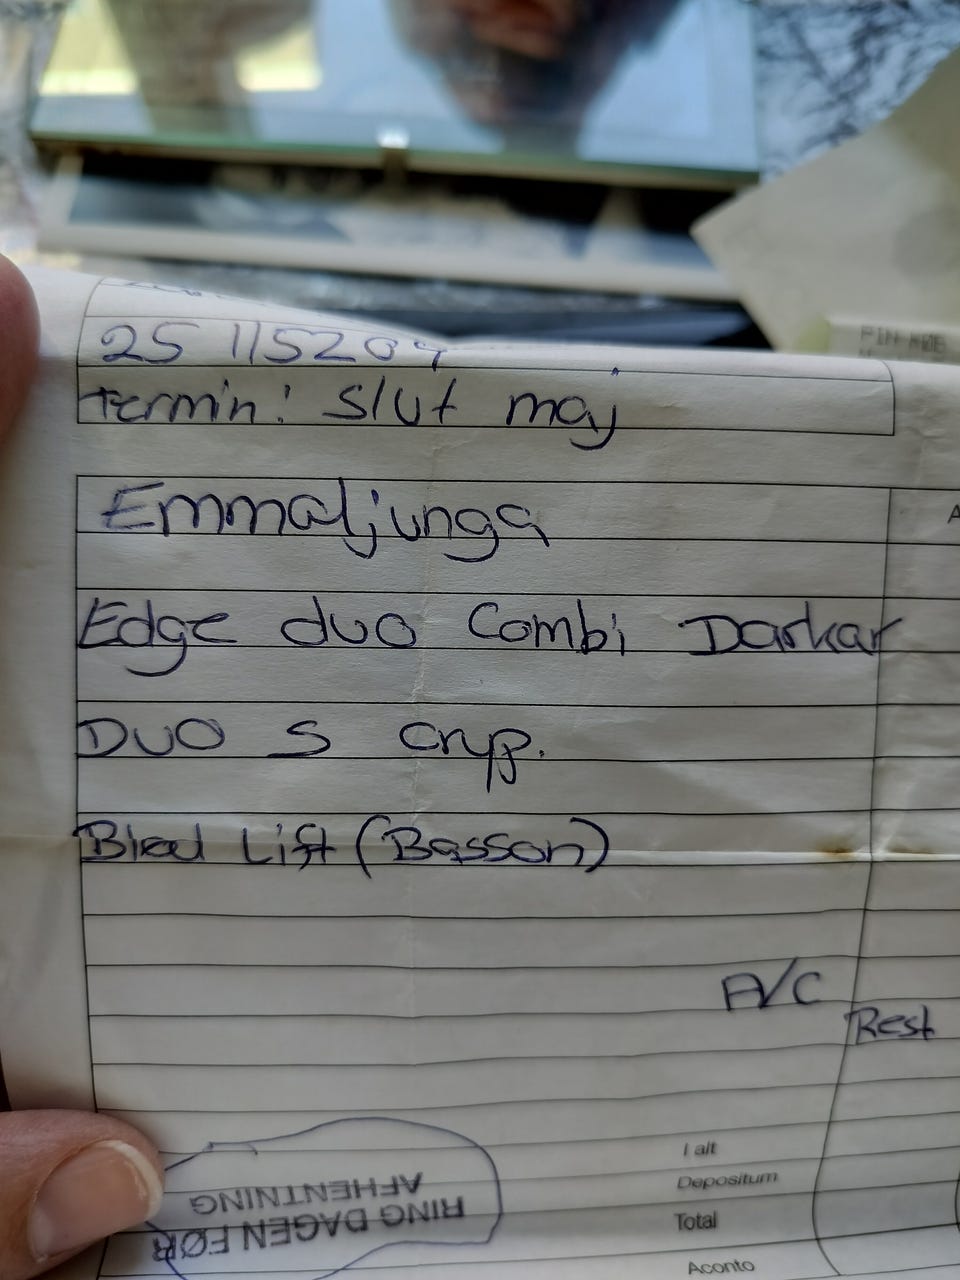 25 115204
termin: Slut maj
Emmaljunga
Edge duo Combi Darkar
DUO S cryp.
Lift (Basson)
A/C
Rest
I alt
Depositum
Total
Aconto
RING DAGEN FØR
AFHENTNING
PIN